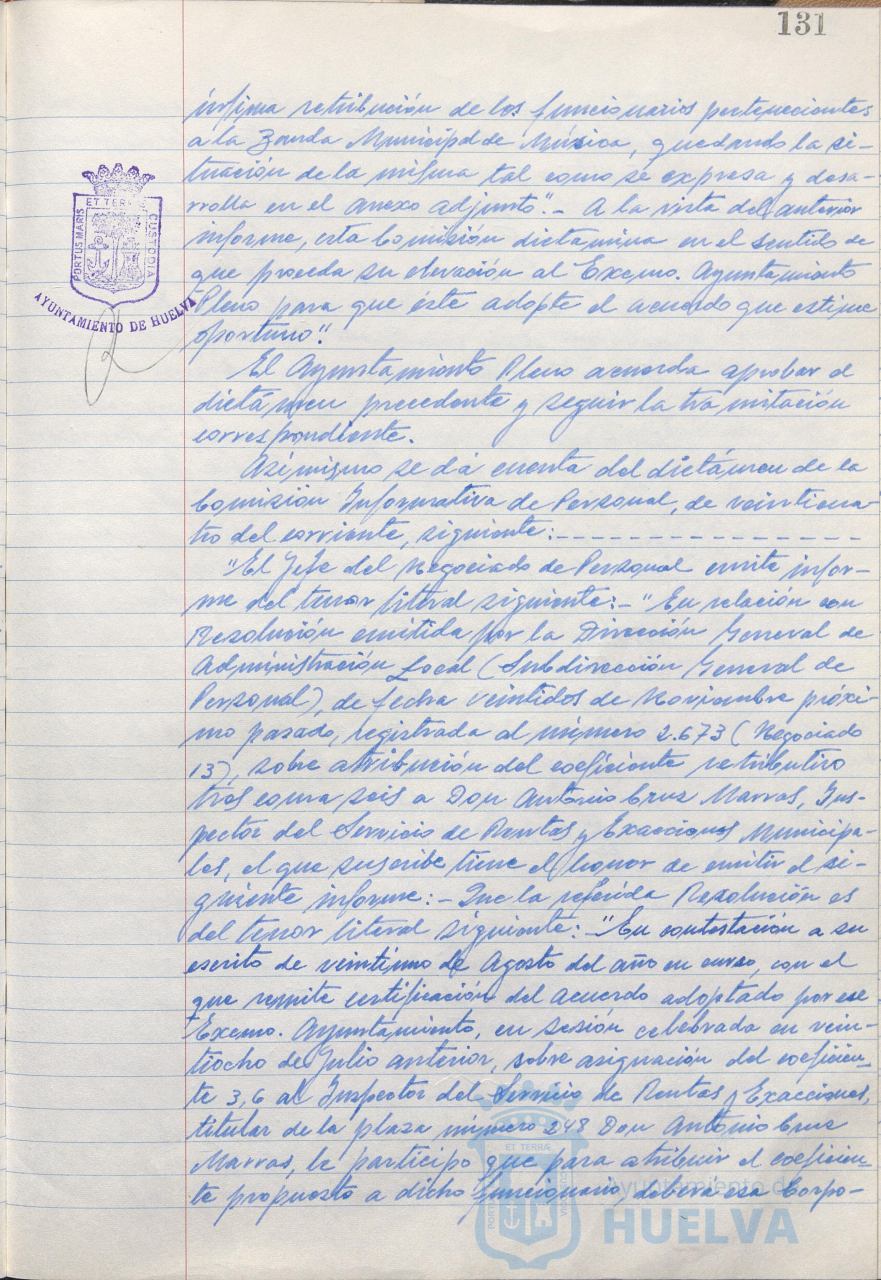 131
ínfima retribución de los funcionarios pertenecientes
a la Banda Municipal de Música, quedando la si-
tuación de la misma tal como se expresa y desa-
rrolla en el anexo adjunto".- A la vista del anterior
informe, esta Comisión dictamina en el sentido de
que proceda su elevación al Excmo. Ayuntamiento
Pleno para que éste adopte el acuerdo que estime
oportuno".
El Ayuntamiento Pleno acuerda aprobar el
dictámen precedente y seguir la tramitación
correspondiente.
Asímismo se dá cuenta del dictámen de la
Comisión Informativa de Personal, de veinticua-
tro del corriente, siguiente:- - - - - - - - - - - - - - - -
"El Jefe del Negociado de Personal emite infor-
me del tenor literal siguiente:- "En relación con
Resolución emitida por la Dirección General de
Administración Local (Subdirección General de
Personal), de fecha veintidos de Noviembre próxi-
mo pasado, registrada al número 2.673 (Negociado
13), sobre atribución del coeficiente retributivo
tres coma seis a Don Antonio Cruz Marvas, Ins-
pector del Servicio de Rentas y Exacciones Municipa-
les, el que suscribe tiene el honor de emitir el si-
guiente informe:- Que la referida Resolución es
del tenor literal siguiente: "En contestación a su
escrito de veintiuno de Agosto del año en curso, con el
que remite certificación del acuerdo adoptado por ese
Excmo. Ayuntamiento, en sesión celebrada en vein-
tiocho de Julio anterior, sobre asignación del coeficien-
te 3,6 al Inspector del Servicio de Rentas y Exacciones,
titular de la plaza número 248 Don Antonio Cruz
Marvas, le participo que para atribuir el coeficien-
te propuesto a dicho funcionario, deberá esa Corpo-
PORTUS MARIS ET TERRAE CUSTODIA
AYUNTAMIENTO DE HUELVA
Ayuntamiento de
HUELVA